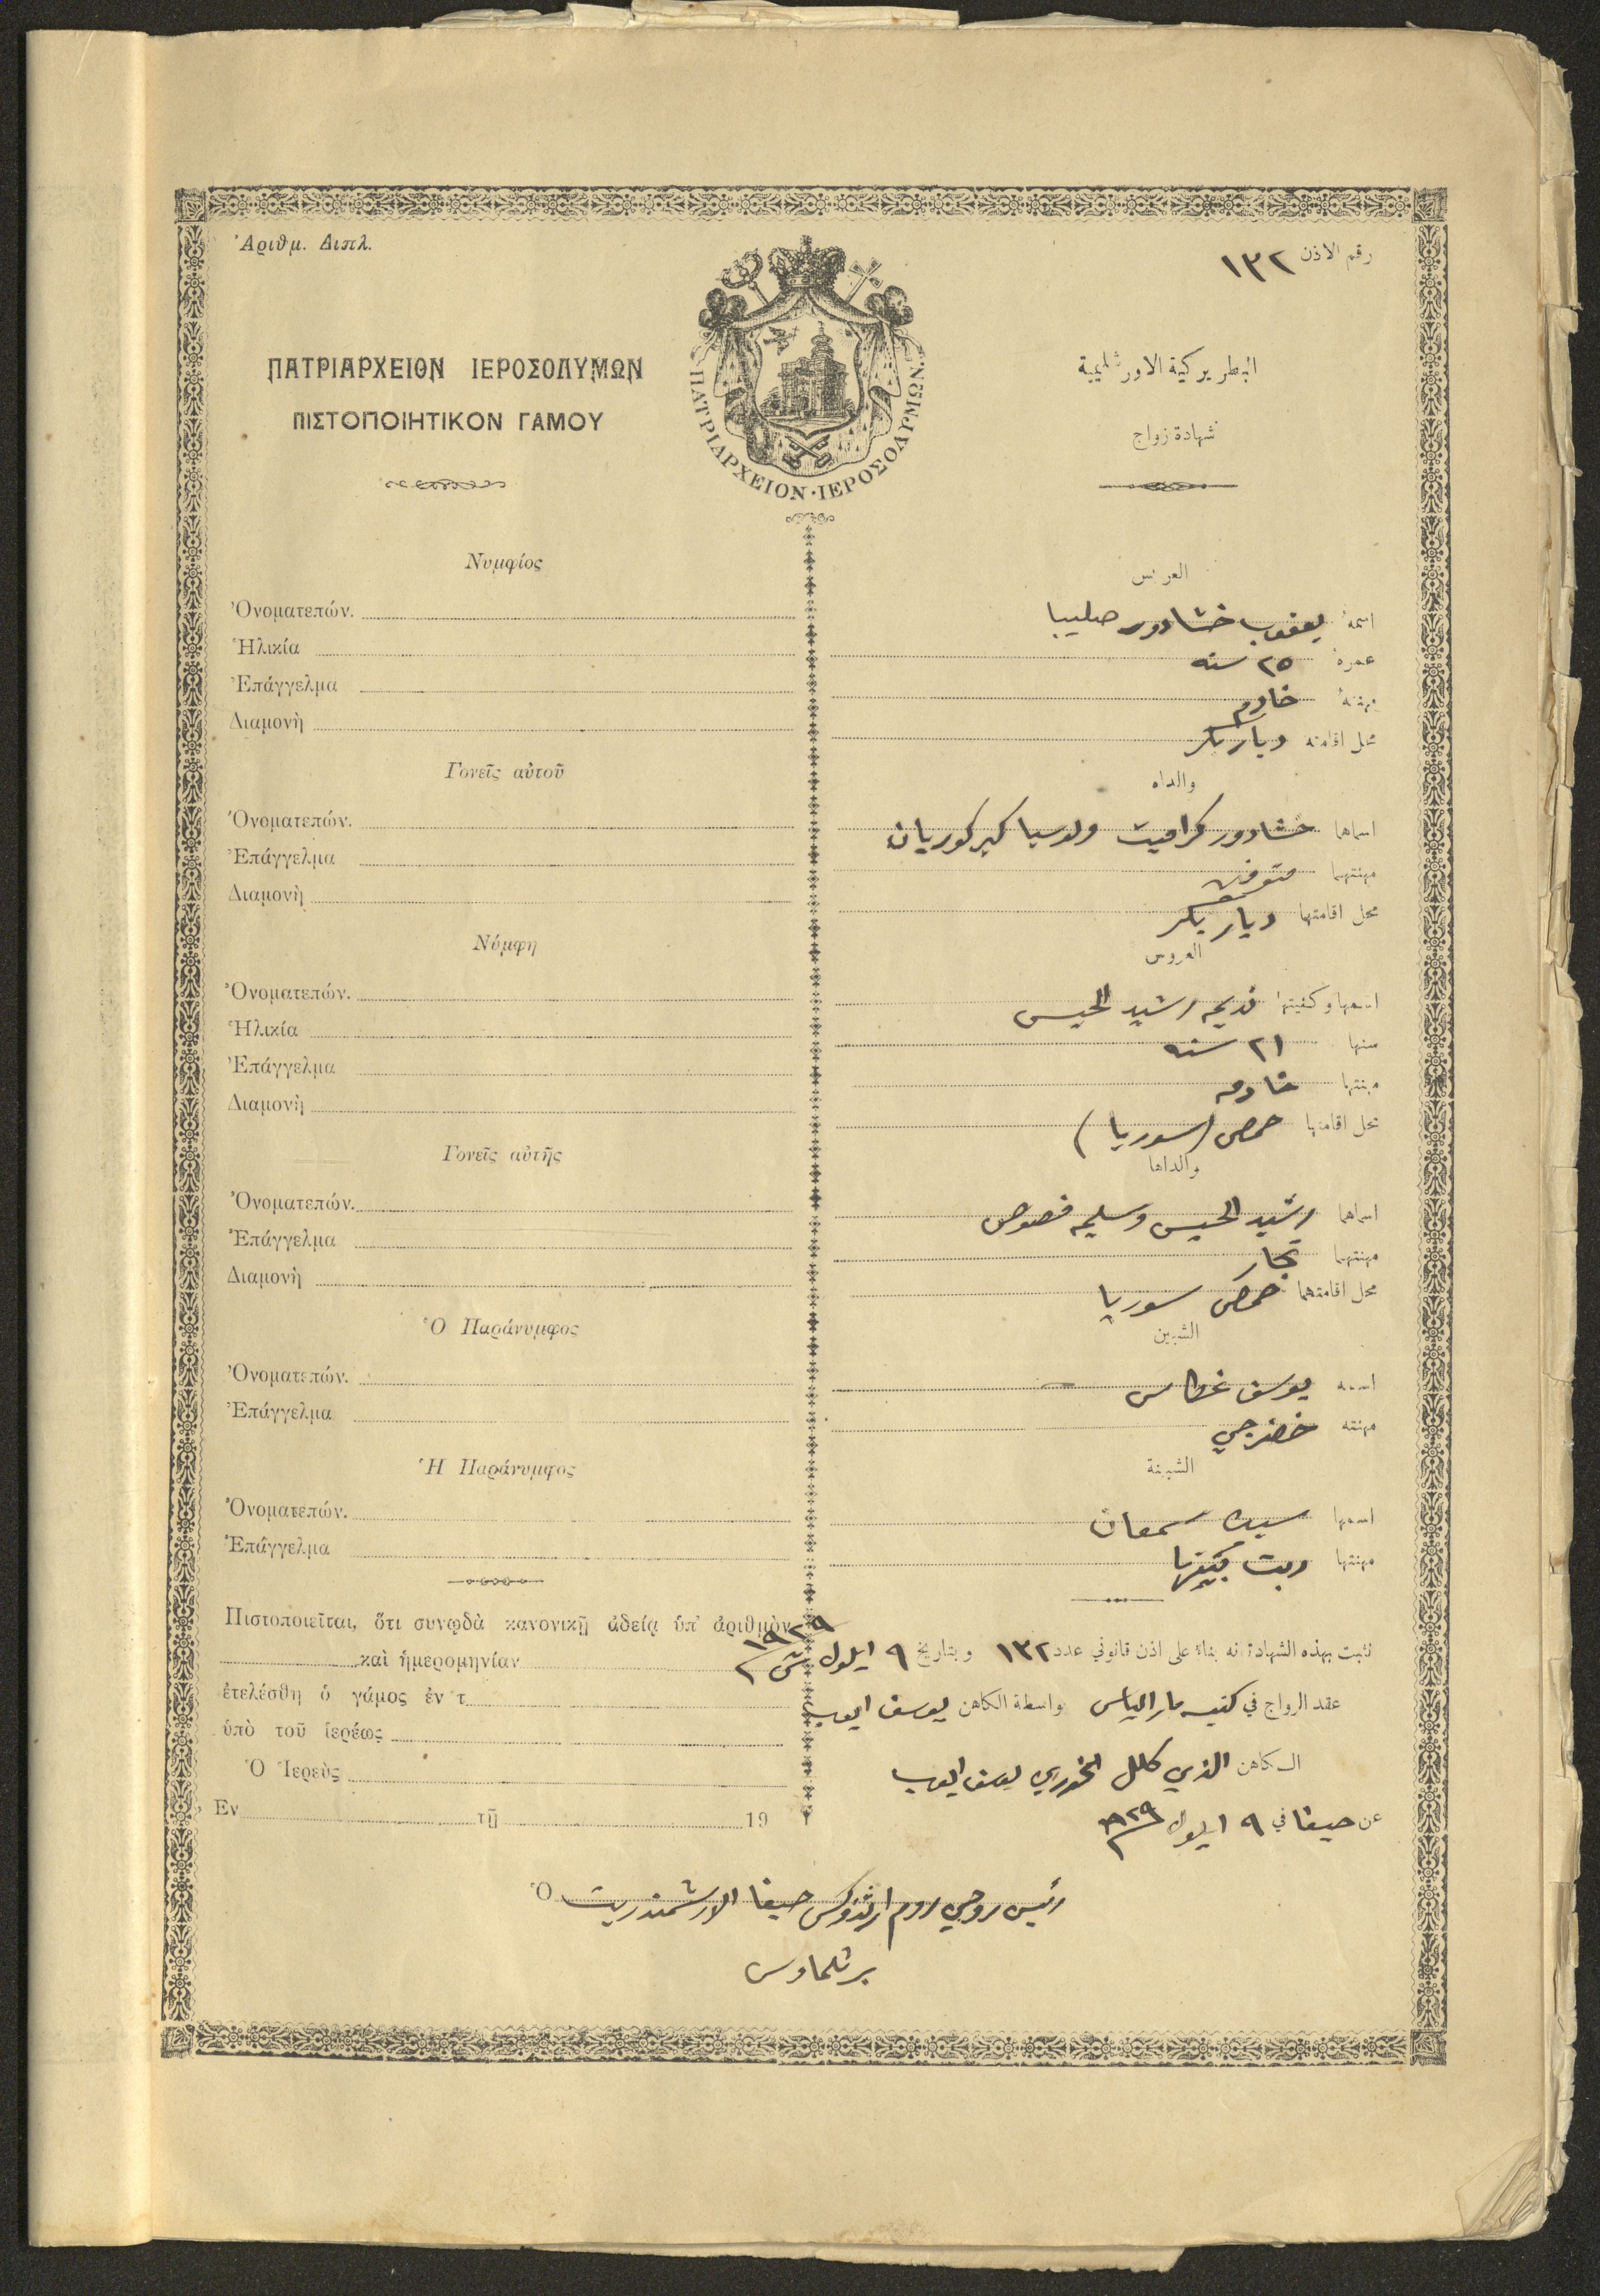 Ἀριθμ. Διπλ.
رقم الاذن ١٣٢
ΠΑΤΡΙΑΡΧΕΙΟΝ ΙΕΡΟΣΟΛΥΜΩΝ
ΠΙΣΤΟΠΟΙΗΤΙΚΟΝ ΓΑΜΟΥ
ΠΑΤΡΙΑΡΧΕΙΟΝ·ΙΕΡΟΣΟΛΥΜΩΝ.
البطريركية الاورشليمية
شهادة زواج
Νυμφίος
Ὀνοματεπών.
Ἡλικία
Ἐπάγγελμα
Διαμονὴ
Γονεῖς αὐτοῦ
Ὀνοματεπών.
Ἐπάγγελμα
Διαμονὴ
Νύμφη
Ὀνοματεπών.
Ἡλικία
Ἐπάγγελμα
Διαμονὴ
Γονεῖς αὐτῆς
Ὀνοματεπών.
Ἐπάγγελμα
Διαμονὴ
Ὁ Παράνυμφος
Ὀνοματεπών.
Ἐπάγγελμα
Ἡ Παράνυμφος
Ὀνοματεπών.
Ἐπάγγελμα
Πιστοποιεῖται, ὅτι συνῳδὰ κανονικῇ ἀδείᾳ ὑπ' ἀριθμὸν
καὶ ἡμερομηνίαν
ἐτελέσθη ὁ γάμος ἐν τ
ὑπὸ τοῦ ἱερέως
Ὁ Ἱερεὺς
Ἐν τῇ 19
العريس
اسمه يعقوب خشادور صليبا
عمره ٢٥ سنه
مهنته خادم
محل اقامته ديار بكر
والداه
اسماهما خشادور كرابيت ولوسيا كيركوريان
مهنتهما متوفى
محل اقامتهما ديار بكر
العروس
اسمها وكنيتها نديمه رشيد الحيس
سنها ٢١ سنه
مهنتها خادمه
محل اقامتها حمص (سوريا)
والداها
اسماهما رشيد الحيس وسليمه فصوص
مهنتهما تجار
محل اقامتهما حمص سوريا
الشبين
اسمه يوسف غطاس
مهنته خضرجي
الشبينة
اسمها سمعان
مهنتها ربت بيتها
نثبت بهذه الشهادة انه بناءً على اذن قانوني عدد ١٣٢ وبتاريخ ٩ ايلول ١٩٢٩
عقد الزواج في كنيسه مار الياس بواسطة الكاهن يوسف ايوب
الكاهن الذي كلل الخوري يوسف ايوب
عن حيفا في ٩ ايلول ١٩٢٩
Ὁ رئيس روحي روم ارثذوكس حيفا الارشمندريت
برثلماوس